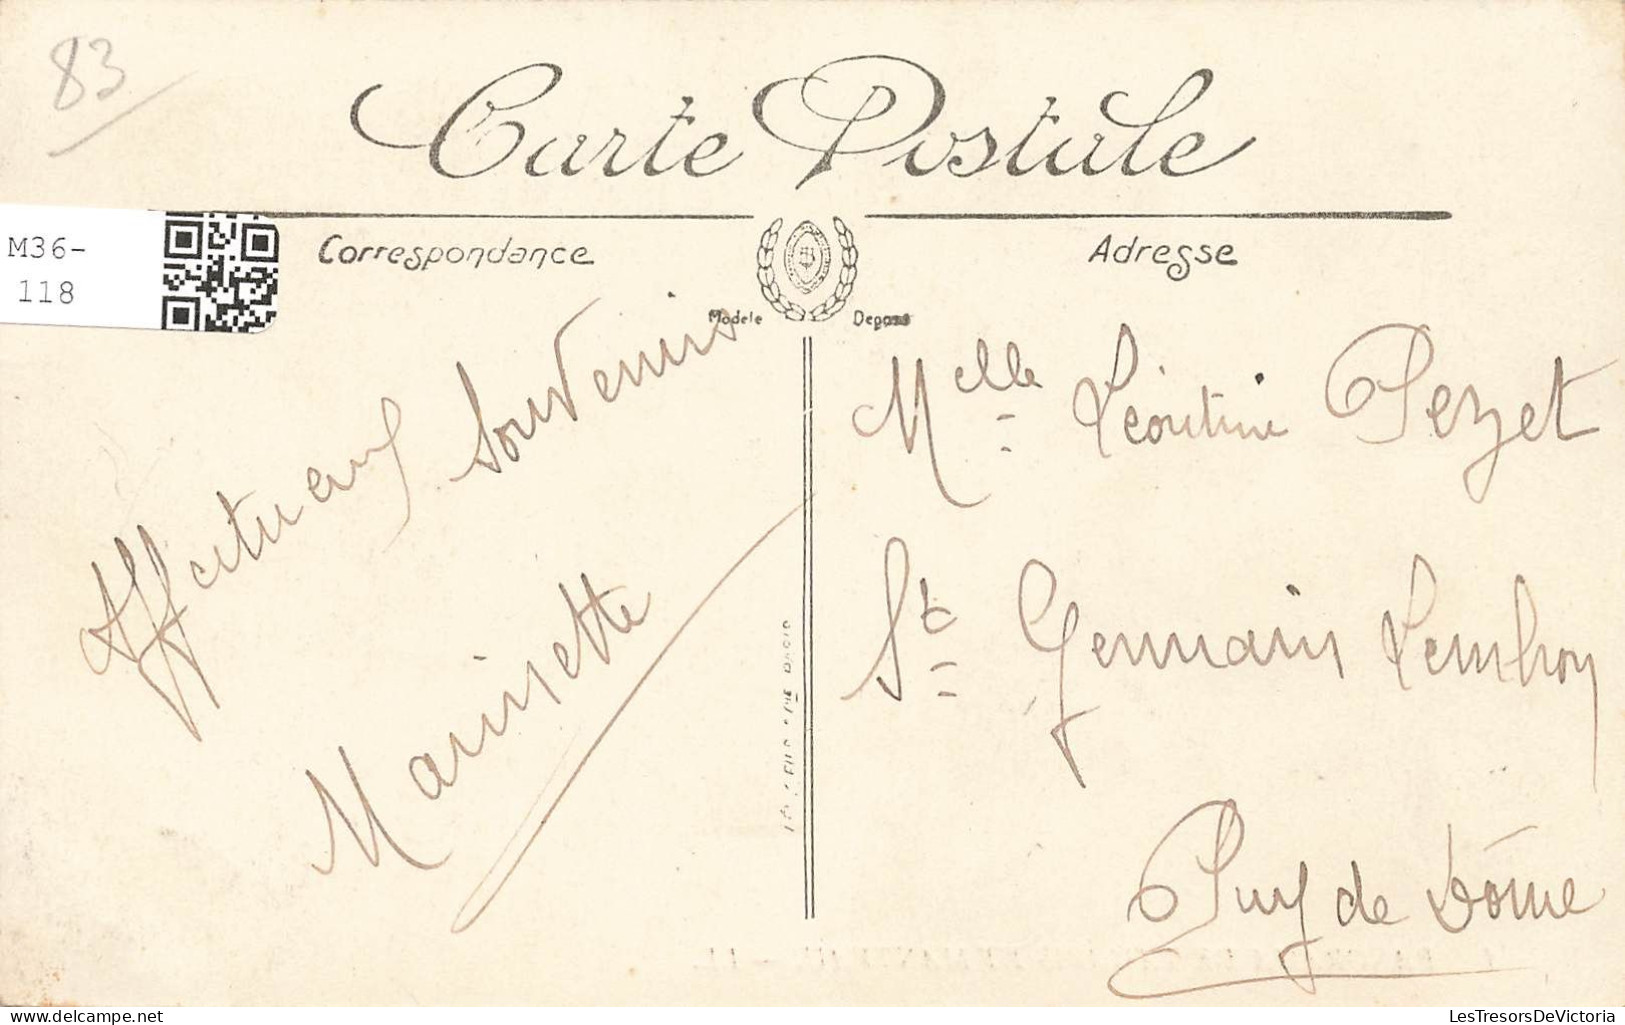 83
Carte Postale
M36-
118
Correspondance
Adresse
Modele Deposé
Affectueux Souvenirs
Marinette
Melle Léontine Pezet
St Germain Lembron
Puy de Dôme
LesTresorsDeVictoria
www.delcampe.net